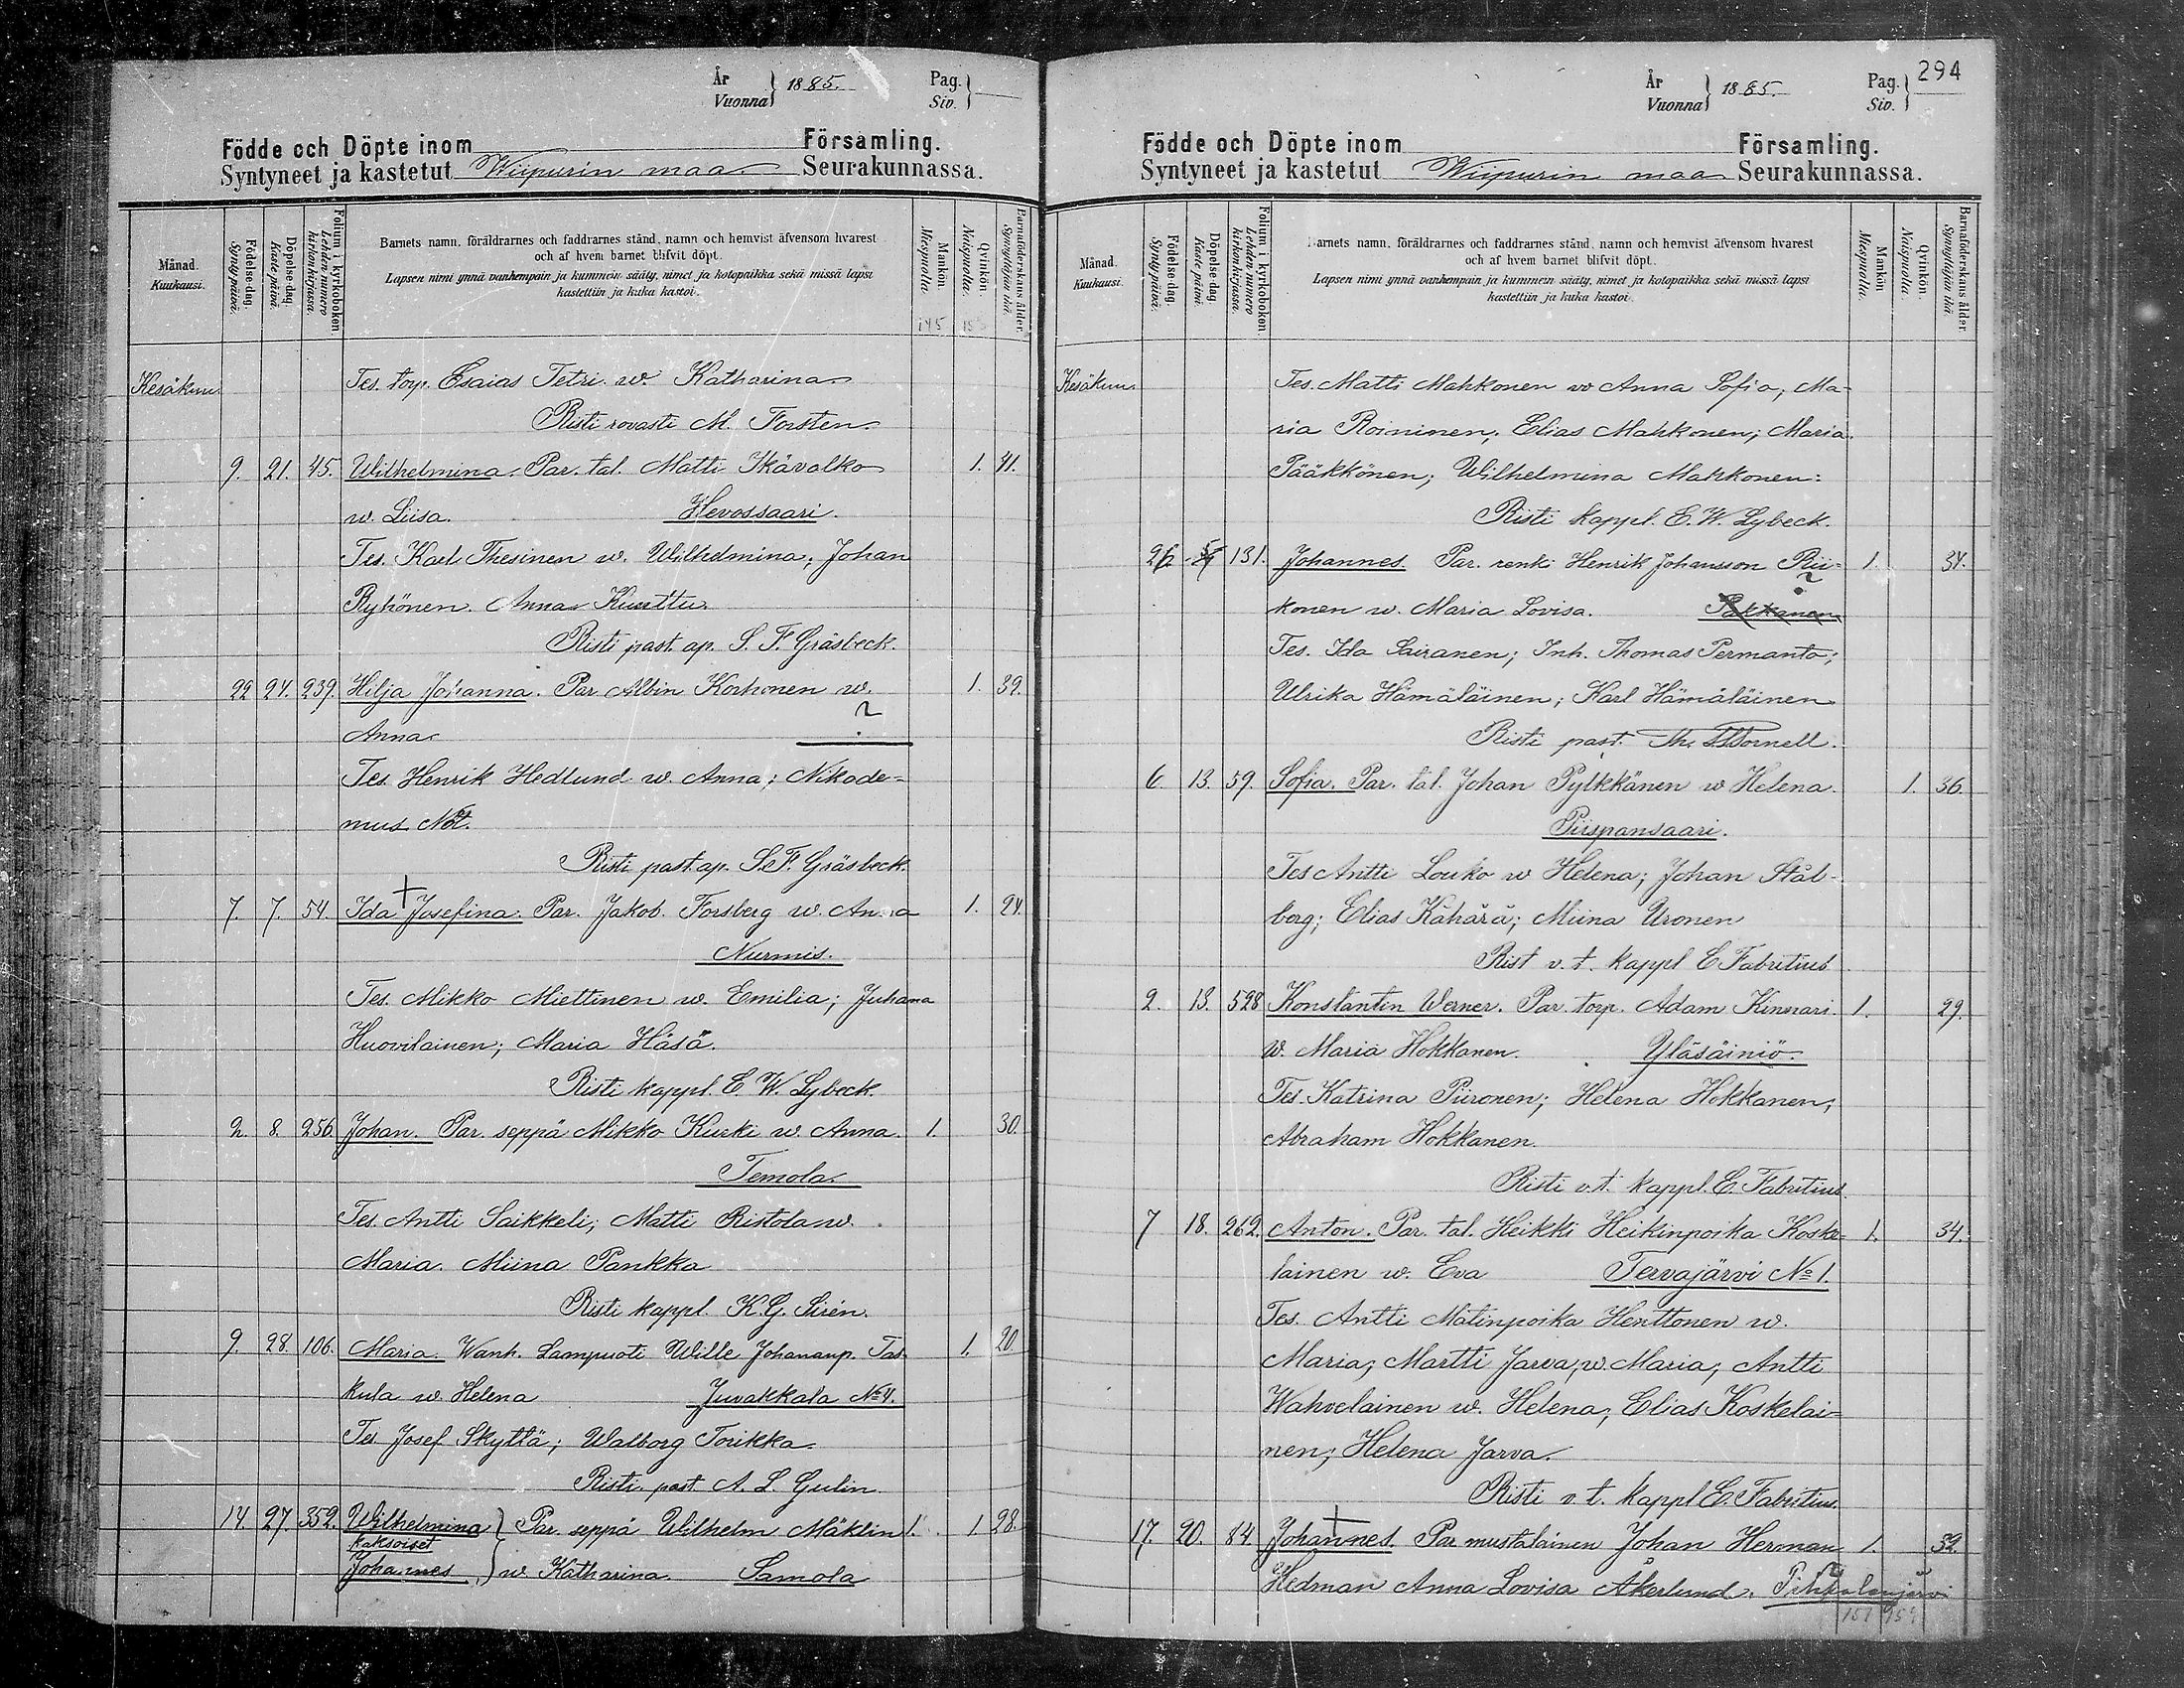 År
Vuonna } 1885.
Pag.
Siv. }
Födde och Döpte inom Församling.
Syntyneet ja kastetut Wiipurin maa Seurakunnassa.
Månad.
Kuukausi.
Födelse-dag.
Syntypäivä.
Döpelse-dag
Kaste päivä.
Folium i kyrkoboken.
Lehden numero
kirkonkirjassa.
Barnets namn, föräldrarnes och faddrarnes stånd, namn och hemvist äfvensom hvarest
och af hvem barnet blifvit döpt.
Lapsen nimi ynnä vanhempain ja kummein sääty, nimet ja kotopaikka sekä missä lapsi
kastettiin ja kuka kastoi.
Mankön.
Miespuolia.
Qvinkön.
Naispuolia.
Barnaföderskans ålder.
Synnyttäjän ikä.
145
Kesäkuu Tes. torp. Esaias Tetri w. Katharina
Risti rovasti M. Forsten.
9. 21. 45. Wilhelmina. Par. tal. Matti Ikävalko 1. 41.
w. Liisa. Hevossaari.
Tes. Karl Thesinen w. Wilhelmina; Johan
Ryhönen. Anna Kunttu.
Risti past. ap. S. F. Gräsbeck.
22 24. 239. Hilja Johanna. Par. Albin Korhonen w. 1. 39.
Anna ?
Tes. Henrik Hedlund w. Anna; Nikode-
mus Not.
Risti past. ap. S. F. Gräsbeck.
7. 7. 54. Ida Josefina. Par. Jakob Forsberg w. Anna 1. 24.
Nurmis.
Tes. Mikko Miettinen w. Emilia; Juhana
Huovilainen; Maria Häsä.
Risti kappl. E. W. Lybeck.
2. 8. 256 Johan. Par. seppä Mikko Kurki w. Anna. 1. 30.
Temola.
Tes. Antti Saikkeli; Matti Ristola w.
Maria. Miina Pankka
Risti kappl. K. G. Sirén.
9. 28. 106. Maria. Wanh. Lampuoti Wille Johananp. Tas- 1. 20.
kula w. Helena Juvakkala No 4.
Tes. Josef Skyttä; Walborg Torikka.
Risti past. A. L. Gulin.
14. 27. 352. Wilhelmina } Par. seppä Wilhelm Mäklin 1. 1 28.
kaksoiset
Johannes } w. Katharina. Samola
294
År
Vuonna } 1885.
Pag.
Siv. }
Födde och Döpte inom Församling.
Syntyneet ja kastetut Wiipurin maa Seurakunnassa.
Månad.
Kuukausi.
Födelse-dag.
Syntypäivä.
Döpelse-dag
Kaste päivä.
Folium i kyrkoboken.
Lehden numero
kirkonkirjassa.
Barnets namn, föräldrarnes och faddrarnes stånd, namn och hemvist äfvensom hvarest
och af hvem barnet blifvit döpt.
Lapsen nimi ynnä vanhempain ja kummein sääty, nimet ja kotopaikka sekä missä lapsi
kastettiin ja kuka kastoi.
Mankön
Miespuolia.
Qvinkön.
Naispuolia.
Barnaföderskans ålder.
Synnyttäjän ikä.
Kesäkuu Tes. Matti Mahkonen w Anna Sofia; Ma-
ria Roininen; Elias Mahkonen; Maria
Pääkkönen; Wilhelmina Mahkonen:
Risti kappl. E. W. Lybeck.
131. Johannes. Par. renki Henrik Johansson Rii- 1. 34.
konen w. Maria Lovisa. ?
Tes. Ida Sairanen; Inh. Thomas Permanto;
Ulrika Hämäläinen; Karl Hämäläinen
Risti past. Th.
6. 13. 59. Sofia. Par. tal. Johan Pylkkänen w Helena. 1. 36.
Piispansaari.
Tes Antti Louko w Helena; Johan Stål-
berg; Elias Kähärä; Miina Uronen
Rist v. t. kappl E Fabritius
2. 13. 528 Konstantin Werner. Par. torp. Adam Kinnari. 1. 29.
w. Maria Hokkanen. Yläsäiniö.
Tes. Katrina Piironen; Helena Hokkanen;
Abraham Hokkanen.
Risti v. t. kappl. E. Fabritius
7 18. 262. Anton. Par. tal. Heikki Heikinpoika Koske- 1. 34.
lainen w. Eva Tervajärvi No 1.
Tes. Antti Matinpoika Henttonen w.
Maria; Martti Jarva, w. Maria; Antti
Wahvelainen w. Helena; Elias Koskelai-
nen; Helena Jarva.
Risti v. t. kappl E. Fabritius.
17. 20. 84 Johannes. Par mustalainen Johan Herman 1. 32.
Hedman Anna Lovisa Åkerlund. Pihkalanjärvi
151 159